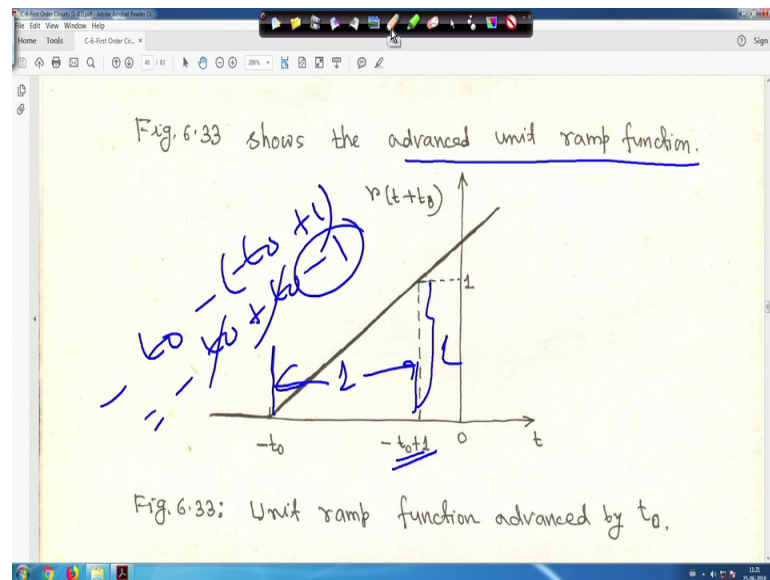 C-6-First Order Circuits [1-83].pdf - Adobe Acrobat Reader DC
File Edit View Window Help
Home Tools C-6-First Order Cir... × Sign
40 / 83 200%
Fig. 6.33 shows the advanced unit ramp function.
r(t+t0)
-t0 - (-t0+1)
= -t0 + t0 - 1
1
1
1
-t0 -t0+1 0 t
Fig. 6.33: Unit ramp function advanced by t0.
11:21